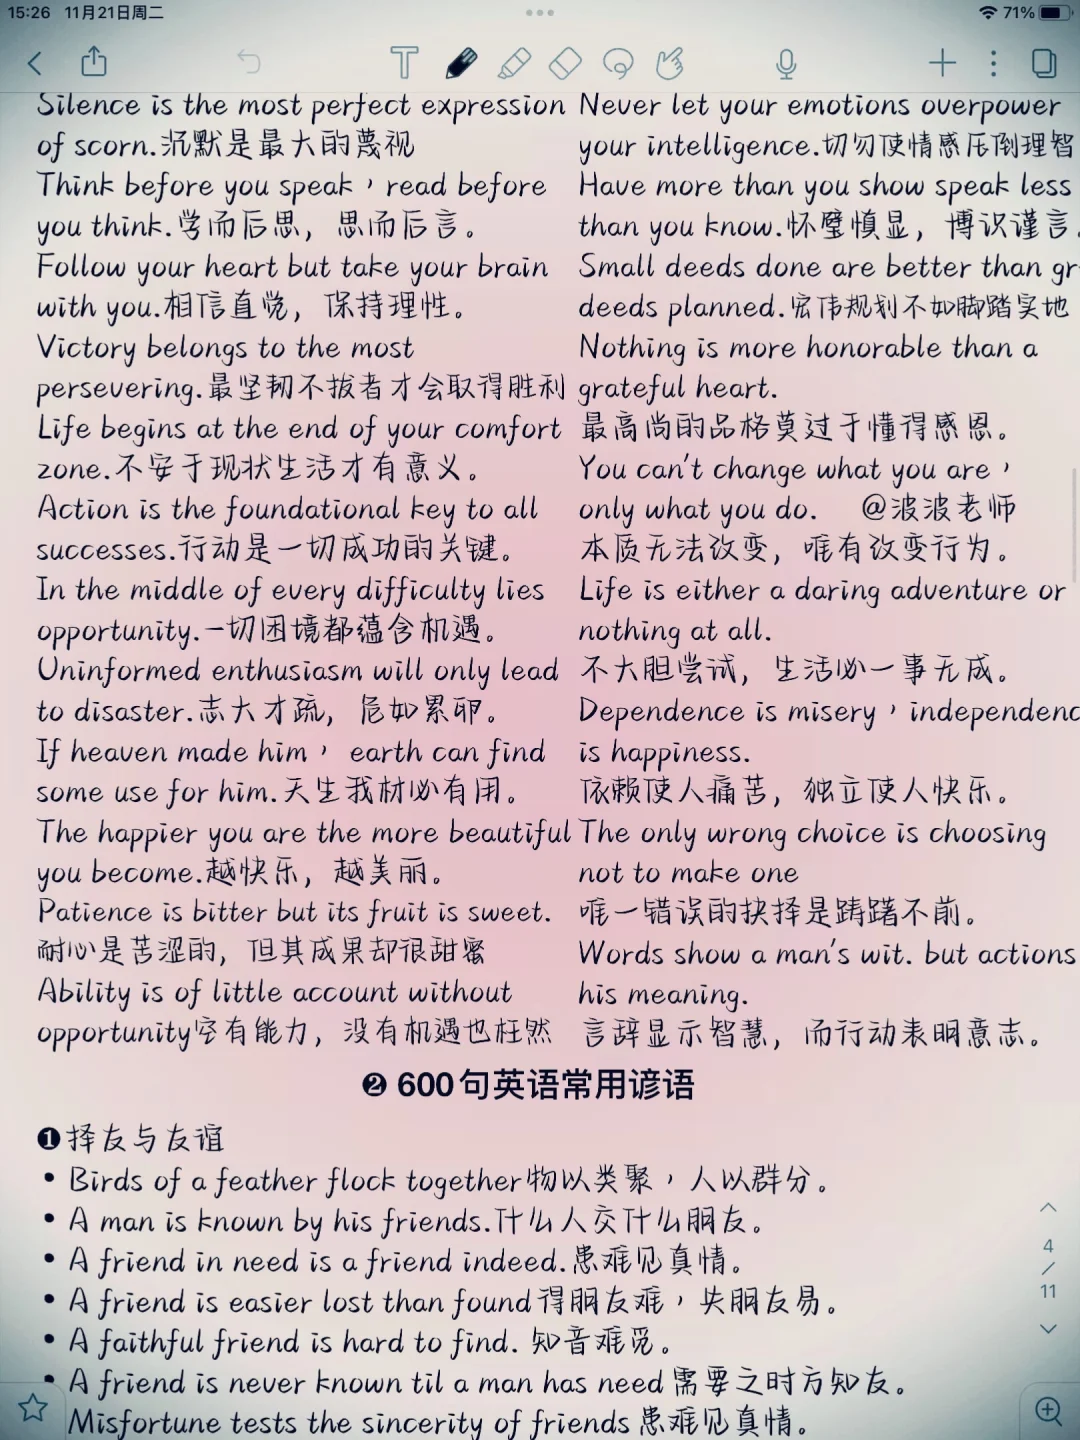 15:26 11月21日周二
71%
Silence is the most perfect expression
of scorn.沉默是最大的蔑视
Think before you speak，read before
you think.学而后思，思而后言。
Follow your heart but take your brain
with you.相信直觉，保持理性。
Victory belongs to the most
persevering.最坚韧不拔者才会取得胜利
Life begins at the end of your comfort
zone.不安于现状生活才有意义。
Action is the foundational key to all
successes.行动是一切成功的关键。
In the middle of every difficulty lies
opportunity.一切困境都蕴含机遇。
Uninformed enthusiasm will only lead
to disaster.志大才疏，危如累卵。
If heaven made him， earth can find
some use for him.天生我材必有用。
The happier you are the more beautiful
you become.越快乐，越美丽。
Patience is bitter but its fruit is sweet.
耐心是苦涩的，但其成果却很甜蜜
Ability is of little account without
opportunity空有能力，没有机遇也枉然
Never let your emotions overpower
your intelligence.切勿使情感压倒理智
Have more than you show speak less
than you know.怀璧慎显，博识谨言。
Small deeds done are better than gr
deeds planned.宏伟规划不如脚踏实地
Nothing is more honorable than a
grateful heart.
最高尚的品格莫过于懂得感恩。
You can't change what you are，
only what you do. @波波老师
本质无法改变，唯有改变行为。
Life is either a daring adventure or
nothing at all.
不大胆尝试，生活必一事无成。
Dependence is misery，independenc
is happiness.
依赖使人痛苦，独立使人快乐。
The only wrong choice is choosing
not to make one
唯一错误的抉择是踌躇不前。
Words show a man's wit. but actions
his meaning.
言辞显示智慧，而行动表明意志。
❷ 600句英语常用谚语
❶择友与友谊
• Birds of a feather flock together物以类聚，人以群分。
• A man is known by his friends.什么人交什么朋友。
• A friend in need is a friend indeed.患难见真情。
• A friend is easier lost than found得朋友难，失朋友易。
• A faithful friend is hard to find. 知音难觅。
• A friend is never known til a man has need需要之时方知友。
Misfortune tests the sincerity of friends患难见真情。
4
/
11